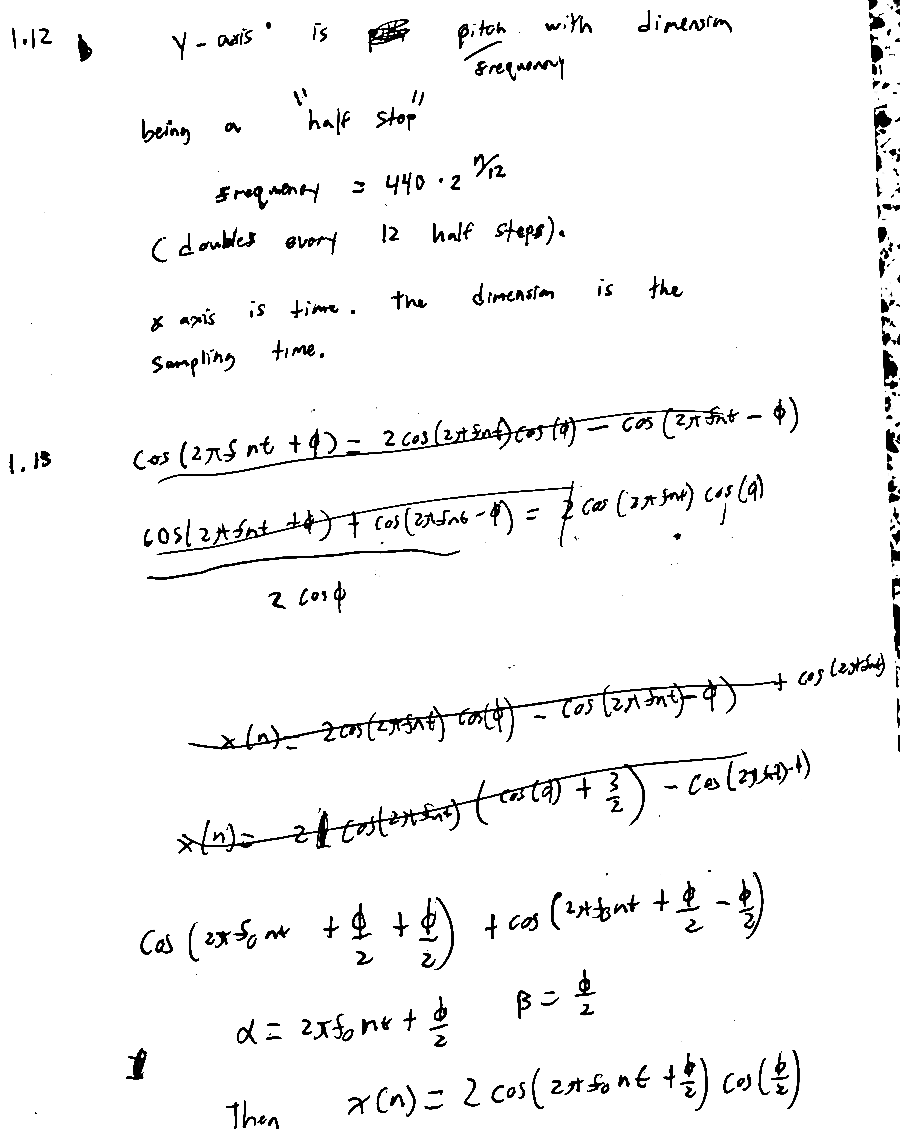 1.12 Y-axis is pitch with dimension
frequency
being a "half stop"
frequency = 440 · 2^n/12
(doubles every 12 half steps).
x axis is time. the dimension is the
sampling time.
1.13 cos(2πf nt + φ) = 2 cos(2πfnt) cos(φ) − cos(2πfnt − φ)
cos(2πfnt + φ) + cos(2πfnt − φ) = 2 cos(2πfnt) cos(φ)
2 cos φ
x(n) = 2cos(2πfnt) cos(φ) − cos(2πfnt − φ) + cos(2πfnt)
x(n) = 2 cos(2πfnt) (cos(φ) + 3/2) − cos(2πfnt − φ)
cos(2πf₀nt + φ/2 + φ/2) + cos(2πf₀nt + φ/2 − φ/2)
α = 2πf₀nt + φ/2 β = φ/2
Then x(n) = 2 cos(2πf₀nt + φ/2) cos(φ/2)